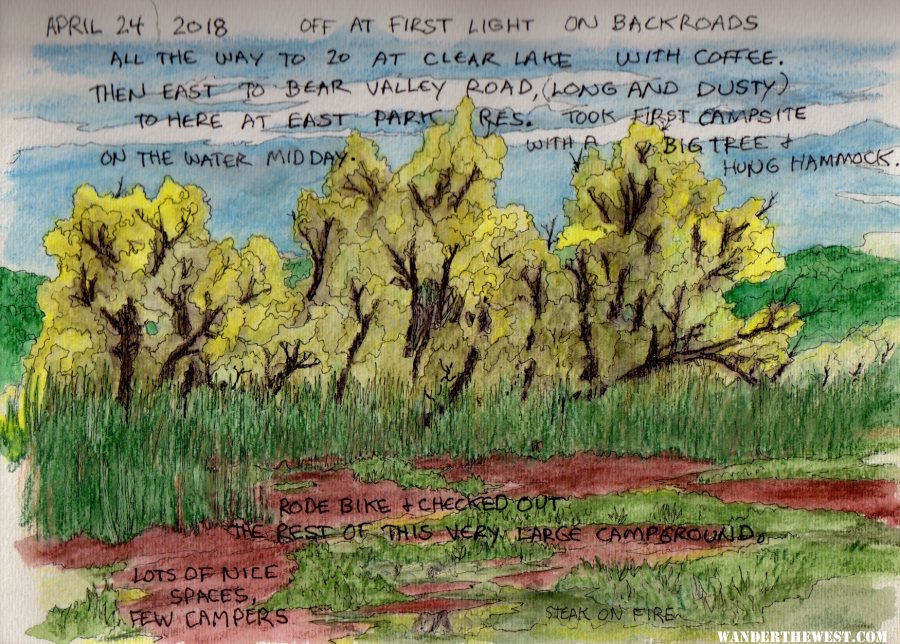 APRIL 24 2018 OFF AT FIRST LIGHT ON BACKROADS
ALL THE WAY TO 20 AT CLEAR LAKE WITH COFFEE.
THEN EAST TO BEAR VALLEY ROAD, (LONG AND DUSTY)
TO HERE AT EAST PARK RES. TOOK FIRST CAMPSITE
ON THE WATER MID DAY. WITH A BIG TREE +
HUNG HAMMOCK.
RODE BIKE + CHECKED OUT
THE REST OF THIS VERY LARGE CAMPGROUND.
LOTS OF NICE
SPACES,
FEW CAMPERS
STEAK ON FIRE
WANDERTHEWEST.COM